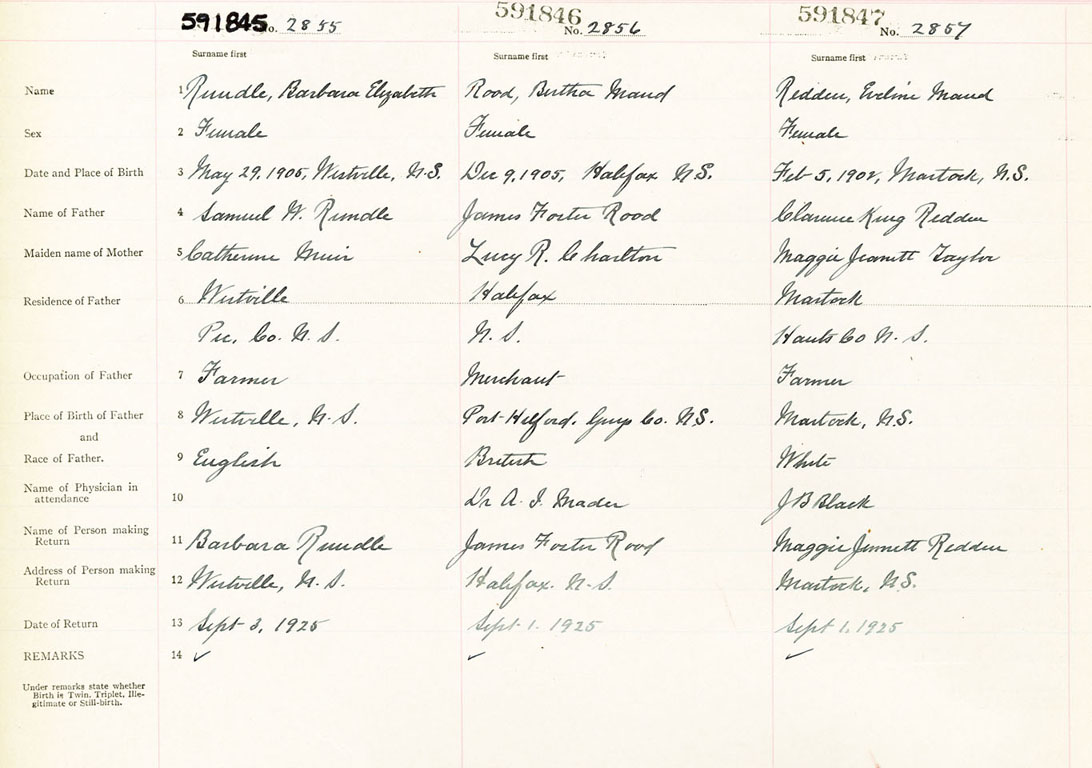 591845 No. 2855 591846 No. 2856 591847 No. 2857
Surname first Surname first Surname first
Name 1 Rundle, Barbara Elizabeth Rood, Bertha Maud Redden, Eveline Maud
Sex 2 Female Female Female
Date and Place of Birth 3 May 29, 1905, Westville, N.S. Dec 9, 1905, Halifax N.S. Feb 5, 1902, Martock, N.S.
Name of Father 4 Samuel W. Rundle James Foster Rood Clarence King Redden
Maiden name of Mother 5 Catherine Muir Lucy R. Charlton Maggie Jennett Taylor
Residence of Father 6 Westville Halifax Martock
Pic. Co. N.S. N.S. Hants Co N.S.
Occupation of Father 7 Farmer Merchant Farmer
Place of Birth of Father 8 Westville, N.S. Port Hilford, Guys Co. N.S. Martock, N.S.
and
Race of Father. 9 English British White
Name of Physician in
attendance 10 Dr A. I. Mader J B Black
Name of Person making
Return 11 Barbara Rundle James Foster Rood Maggie Jennett Redden
Address of Person making
Return 12 Westville, N.S. Halifax. N.S. Martock, N.S.
Date of Return 13 Sept 3, 1925 Sept. 1. 1925 Sept 1, 1925
REMARKS 14 ✓ ✓ ✓
Under remarks state whether
Birth is Twin, Triplet, Ille-
gitimate or Still-birth.